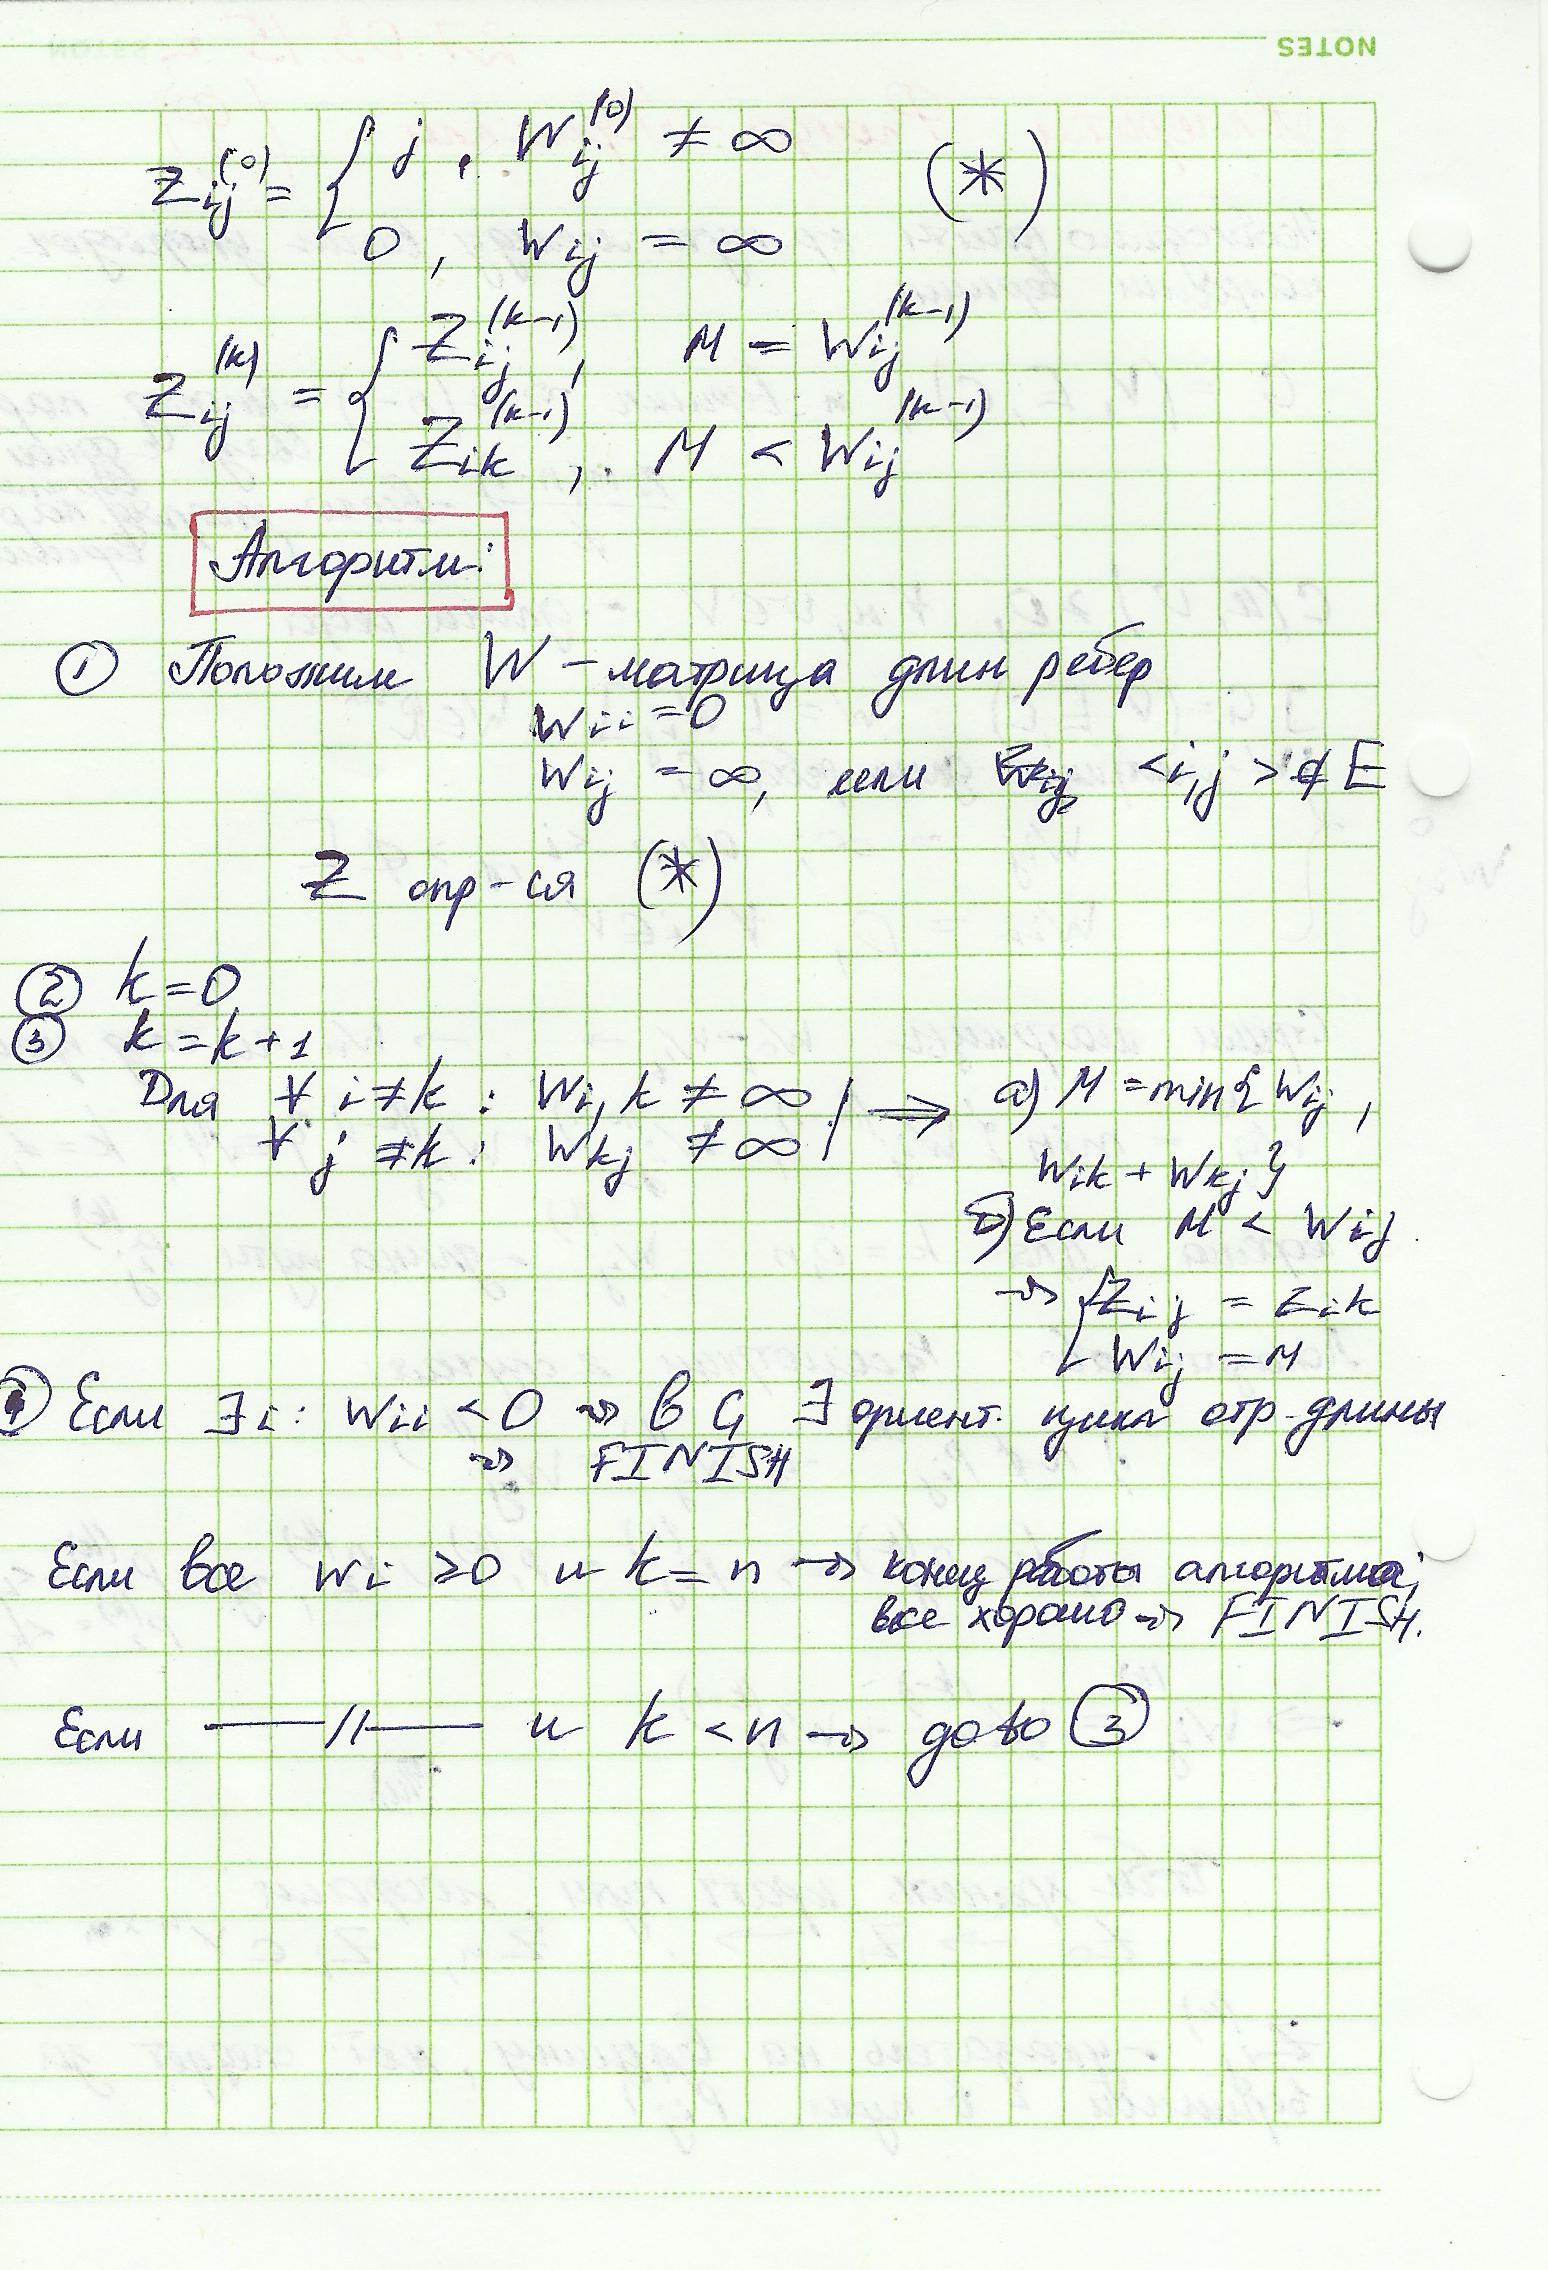 NOTES
Z_ij^(0) = { j, W_ij^(0) ≠ ∞
0, W_ij = ∞
(*)
Z_ij^(k) = { Z_ij^(k-1), M = W_ij^(k-1)
Z_ik^(k-1), M < W_ij^(k-1)
Алгоритм:
① Положим W – матрица длин ребер
W_ii = 0
W_ij = ∞, если <i,j> ∉ E
Z опр-ся (*)
② k = 0
③ k = k + 1
Для ∀ i ≠ k : W_i,k ≠ ∞
∀ j ≠ k : W_kj ≠ ∞ | ⇒ а) M = min{ W_ij ,
W_ik + W_kj }
б) Если M < W_ij
→ { Z_ij = Z_ik
W_ij = M
④ Если ∃ i : W_ii < 0 → в G ∃ ориент. цикл отр. длины
→ FINISH
Если все W_i ≥ 0 и k = n → конец работы алгоритма;
все хорошо → FINISH.
Если ——//—— и k < n → goto ③